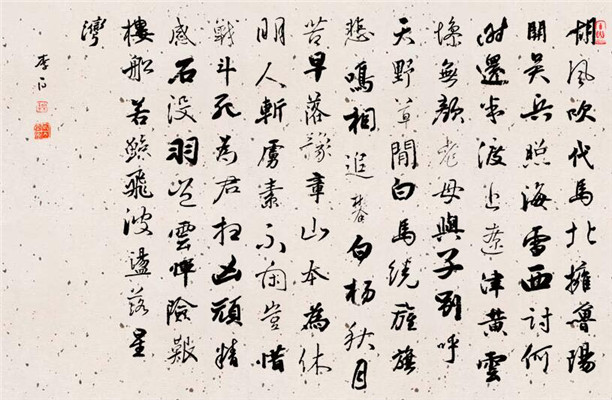 胡風吹代馬北擁魯陽
關吳兵照海雪西討何
時還半渡上遼津黃雲
慘無顏老母與子別呼
天野草間白馬繞旌旗
悲鳴相追攀白楊秋月
苦早落豫章山本為休
明人斬虜素不閑豈惜
戰斗死為君扫凶頑精
感石沒羽豈雲憚險艱
樓船若鯨飛波盪落星
灣
李白